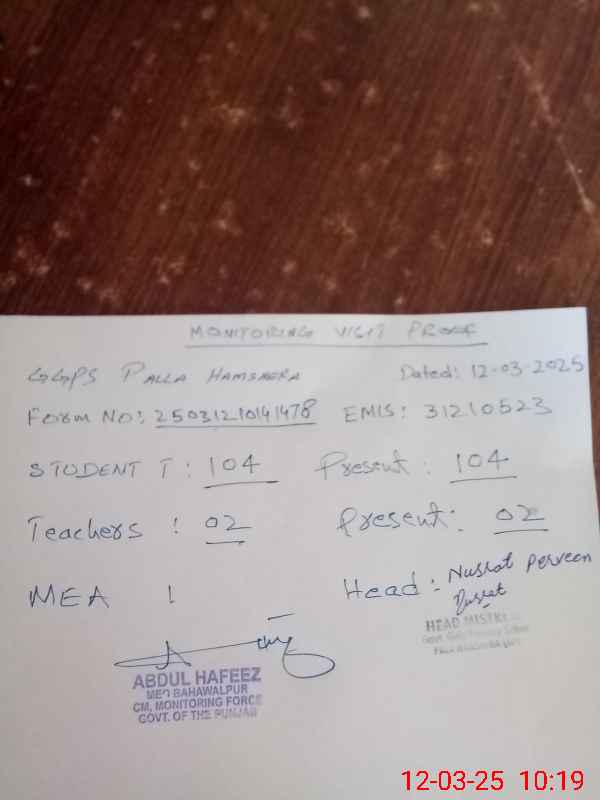 MONITORING VISIT PROOF
GGPS PALLA HAMSHERA Dated: 12-03-2025
Form No: 25031210141478 EMIS: 31210523
STUDENT T: 104 Present: 104
Teachers : 02 Present: 02
MEA : Head: Nusrat Perveen
Nusrat
HEAD MISTRESS
Govt. Girls Primary School
ABDUL HAFEEZ
MEO BAHAWALPUR
CM, MONITORING FORCE
GOVT. OF THE PUNJAB
12-03-25 10:19